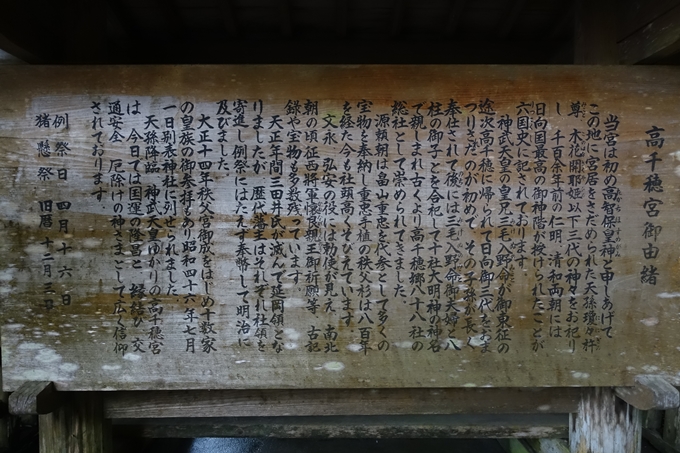 高千穂宮御由緒
当宮は初め高智保皇神と申しあげて
この地に宮居をさだめられた天孫瓊々杵
尊、木花開耶姫以下三代の神々をお祀り
し、千百余年前の仁明、清和両朝には
日向国最高の御神階を授けられたことが
六国史に記されております。
神武天皇の皇兄三毛入野命が御東征の
途次高千穂に帰られて日向御三代をおま
つりされたのが初めで、その子孫が長く
奉仕されて後には三毛入野命御夫婦と八
柱の御子とを合祀して十社大明神の神名
で親しまれ古くより高千穂郷八十八社の
総社として崇められてきました。
源頼朝は畠山重忠を代参として多くの
宝物を奉納し重忠手植の秩父杉は八百年
を経た今も社頭高くそびえています。
文永、弘安の役には勅使が見え、南北
朝の頃征西将軍懐良親王御祈願等、古記
録や宝物も多数残っています。
天正年間三田井氏が滅んで延岡領とな
りましたが、歴代藩主はそれぞれ社領を
寄進し例祭にはたえず奉幣して明治に
及びました。
大正十四年秩父宮御成をはじめ十数家
の皇族の御参拝もあり昭和四十六年七月
一日別表神社に列せられました。
天孫降臨、神武天皇ゆかりの高千穂宮
は、今日では国運の隆昌と、縁結び、交
通安全、厄除けの神さまとして広く信仰
されております。
例祭日 四月十六日
猪懸祭 旧暦 十二月三日